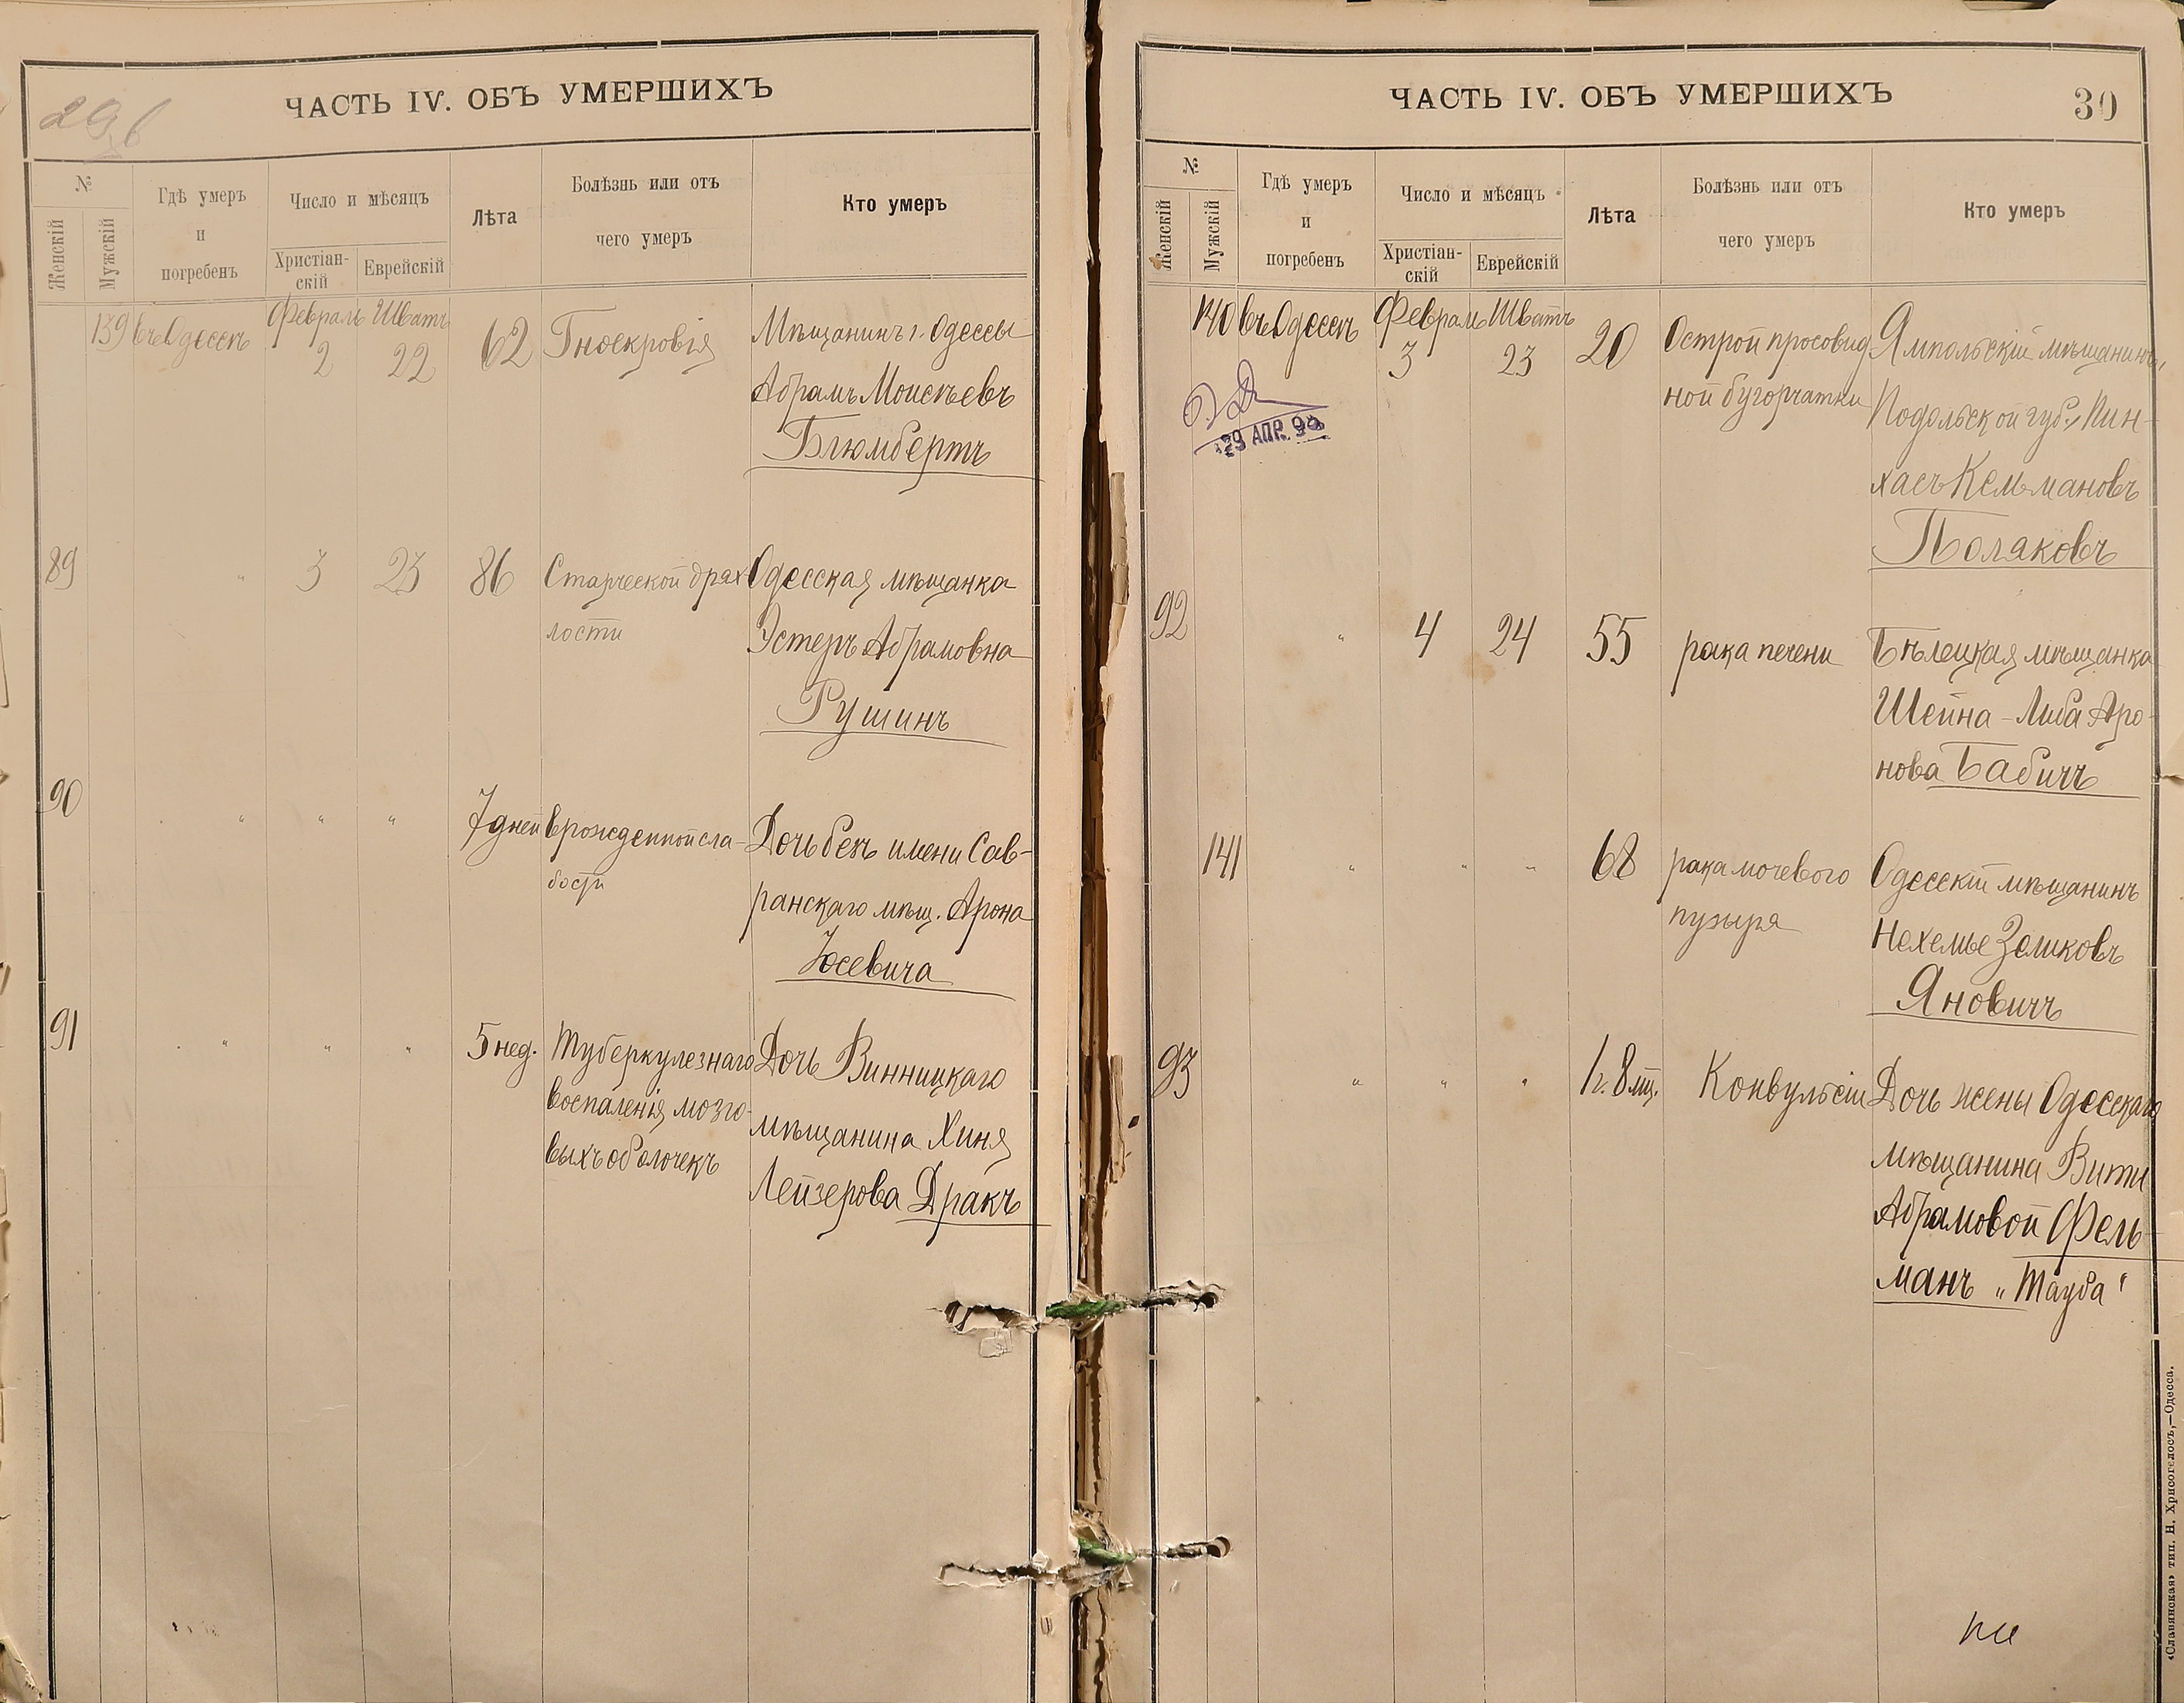 29 б
ЧАСТЬ IV. ОБЪ УМЕРШИХЪ
№
Женскій
Мужскій
Гдѣ умеръ
и
погребенъ
Число и мѣсяцъ
Христіан-
скій
Еврейскій
Лѣта
Болѣзнь или отъ
чего умеръ
Кто умеръ
139 въ Одессѣ Февраль Шватъ
2 22 62 Гноекровія
Мѣщанинъ г. Одессы
Абрамъ Моисѣевъ
Блюмбертъ
89 " 3 23 86 Старческой дрях-
лости
Одесская мѣщанка
Эстеръ Абрамовна
Рушинъ
90 " " " 7 дней врожденной сла-
бости
Дочь безъ имени Сав-
ранскаго мѣщ. Арона
Юсевича
91 " " " 5 нед. Туберкулезнаго
воспаленія мозго-
выхъ оболочекъ
Дочь Винницкаго
мѣщанина Хиня
Лейзерова Дракъ
ЧАСТЬ IV. ОБЪ УМЕРШИХЪ
30
№
Женскій
Мужскій
Гдѣ умеръ
и
погребенъ
Число и мѣсяцъ
Христіан-
скій
Еврейскій
Лѣта
Болѣзнь или отъ
чего умеръ
Кто умеръ
140 въ Одессѣ Февраль Шватъ
3 23 20 Острой просовид
ной бугорчатки
Ямпольскій мѣщанинъ,
Подольской губ., Пин-
хасъ Кельмановъ
Поляковъ
29 АПР. 98
92 " 4 24 55 рака печени
Бѣлецкая мѣщанка
Шейна-Либа Аро-
нова Бабичъ
141 " " " 68 рака мочевого
пузыря
Одесскій мѣщанинъ
Нехемье Зеликовъ
Яновичъ
93 " " " 1 г. 8 мц. Конвульсіи
Дочь жены Одесскаго
мѣщанина Вити
Абрамовой Фель-
манъ „Тауба"
«Славянская» тип. Н. Хрисогелосъ,—Одесса.